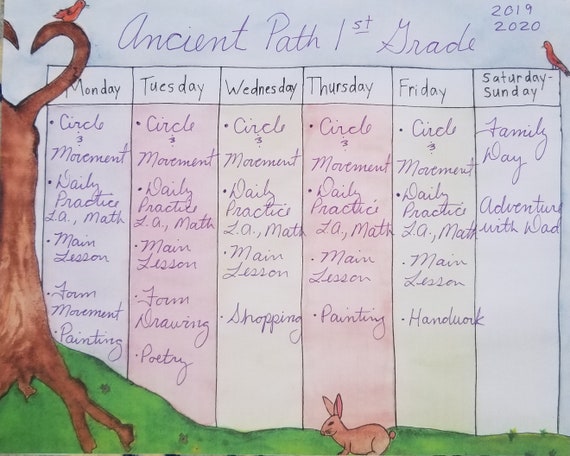 Ancient Path 1st Grade
2019
2020
Monday
Tuesday
Wednesday
Thursday
Friday
Saturday-
Sunday
• Circle
&
Movement
• Daily
Practice
L.A., Math
• Main
Lesson
• Form
Movement
• Painting
• Circle
&
Movement
• Daily
Practice
L.A., Math
• Main
Lesson
• Form
Drawing
• Poetry
• Circle
&
Movement
• Daily
Practice
L.A., Math
• Main
Lesson
• Shopping
• Circle
&
Movement
• Daily
Practice
L.A., Math
• Main
Lesson
• Painting
• Circle
&
Movement
• Daily
Practice
L.A., Math
• Main
Lesson
• Handwork
Family
Day
Adventure
with Dad